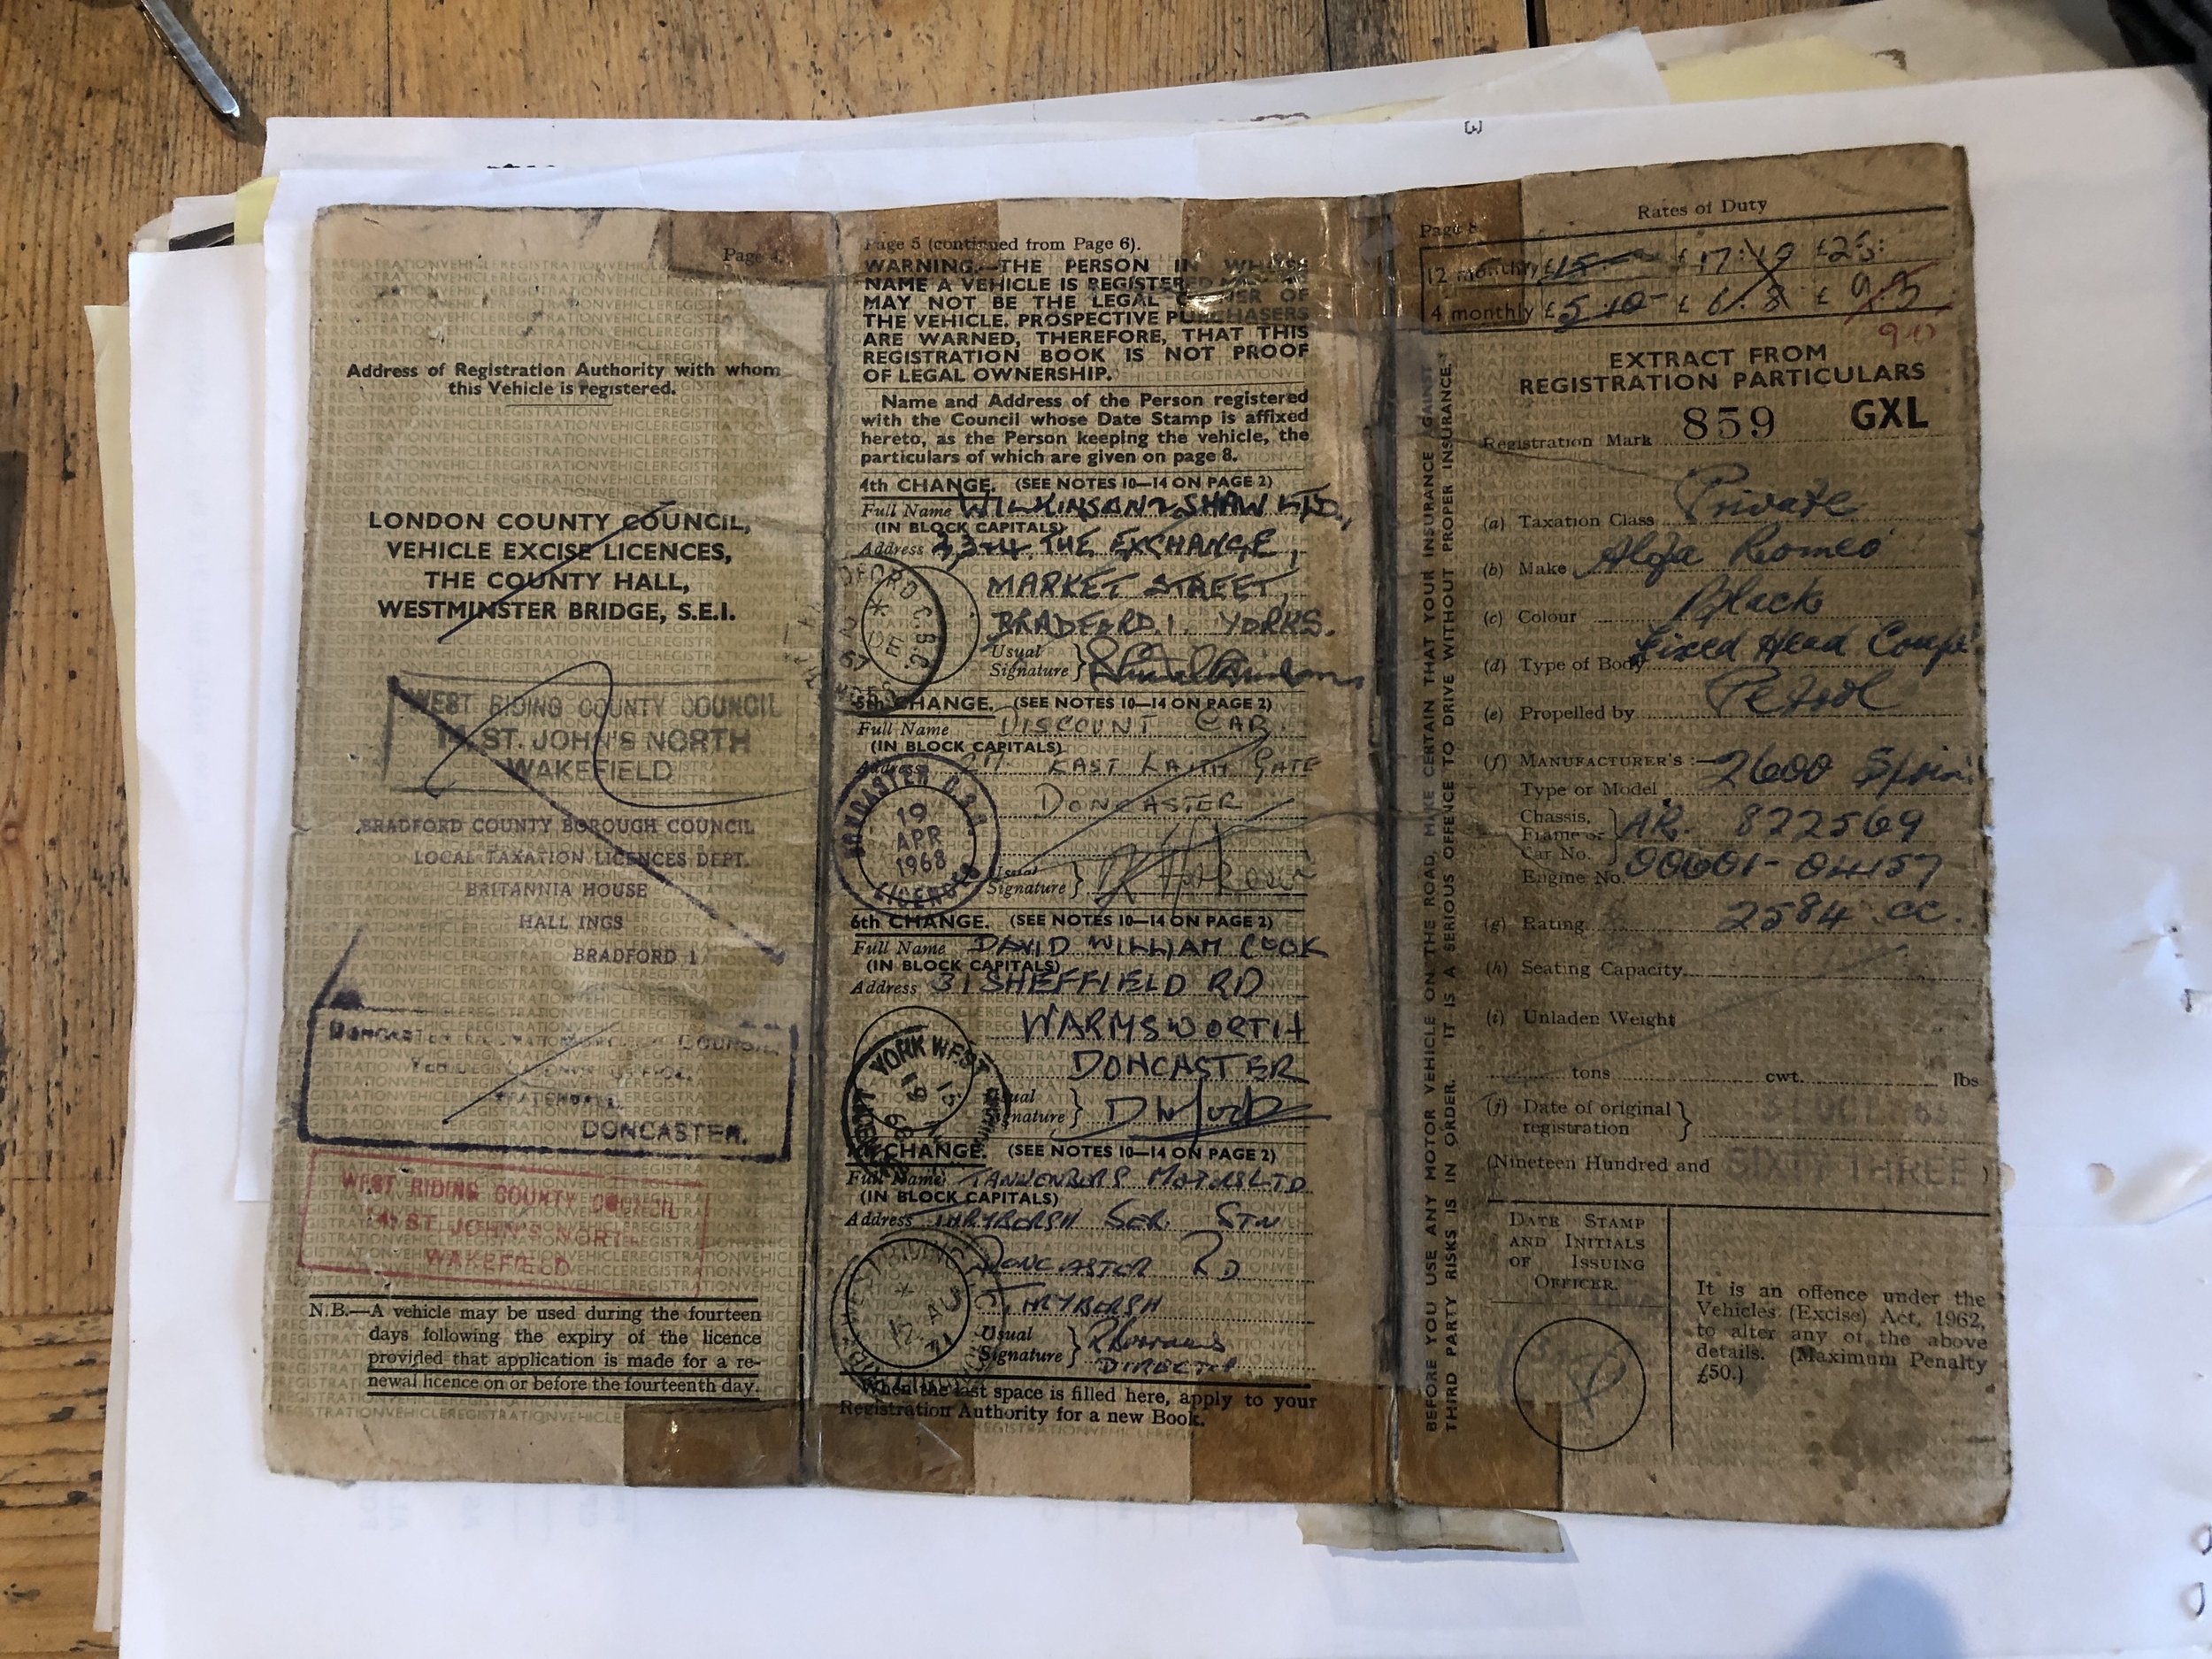 Page 4
Address of Registration Authority with whom
this Vehicle is registered.
LONDON COUNTY COUNCIL,
VEHICLE EXCISE LICENCES,
THE COUNTY HALL,
WESTMINSTER BRIDGE, S.E.1.
WEST RIDING COUNTY COUNCIL
ST. JOHN'S NORTH
WAKEFIELD
BRADFORD COUNTY BOROUGH COUNCIL
LOCAL TAXATION LICENCES DEPT.
BRITANNIA HOUSE
HALL INGS
BRADFORD 1
COUNCIL
DONCASTER.
WEST RIDING COUNTY COUNCIL
ST. JOHN'S NORTH
WAKEFIELD
N.B.—A vehicle may be used during the fourteen
days following the expiry of the licence
provided that application is made for a re-
newal licence on or before the fourteenth day.
Page 5 (continued from Page 6).
WARNING.—THE PERSON IN WHOSE
NAME A VEHICLE IS REGISTERED
MAY NOT BE THE LEGAL OWNER OF
THE VEHICLE. PROSPECTIVE PURCHASERS
ARE WARNED, THEREFORE, THAT THIS
REGISTRATION BOOK IS NOT PROOF
OF LEGAL OWNERSHIP.
Name and Address of the Person registered
with the Council whose Date Stamp is affixed
hereto, as the Person keeping the vehicle, the
particulars of which are given on page 8.
4th CHANGE. (SEE NOTES 10—14 ON PAGE 2)
Full Name WILKINSON & SHAW LTD.,
(IN BLOCK CAPITALS)
Address THE EXCHANGE,
MARKET STREET,
BRADFORD.1. YORKS.
Usual
Signature
5th CHANGE. (SEE NOTES 10—14 ON PAGE 2)
Full Name DISCOUNT CAR
(IN BLOCK CAPITALS)
Address EAST LAITH GATE
DONCASTER
DONCASTER C.B.C.
19
APR
1968
LICENCES
Usual
Signature
6th CHANGE. (SEE NOTES 10—14 ON PAGE 2)
Full Name DAVID WILLIAM COOK
(IN BLOCK CAPITALS)
Address 31 SHEFFIELD RD
WARMSWORTH
DONCASTER
YORK WEST
Usual
Signature
CHANGE. (SEE NOTES 10—14 ON PAGE 2)
Full Name MOTORS LTD
(IN BLOCK CAPITALS)
Address THRYBERGH SER. STN
DONCASTER RD
THRYBERGH
Usual
Signature
DIRECTOR
When the last space is filled here, apply to your
Registration Authority for a new Book.
BEFORE YOU USE ANY MOTOR VEHICLE ON THE ROAD, MAKE CERTAIN THAT YOUR INSURANCE AGAINST
THIRD PARTY RISKS IS IN ORDER. IT IS A SERIOUS OFFENCE TO DRIVE WITHOUT PROPER INSURANCE.
Page 8
Rates of Duty
12 monthly £15 £17:10 £25:
4 monthly £5 10 £6:8 £9.3
EXTRACT FROM
REGISTRATION PARTICULARS
Registration Mark 859 GXL
(a) Taxation Class Private
(b) Make Alfa Romeo
(c) Colour Black
(d) Type of Body Fixed Head Coupe
(e) Propelled by Petrol
(f) MANUFACTURER'S :— 2600
Type or Model
Chassis,
Frame or
Car No. AR. 822569
Engine No. 00601-04157
(g) Rating 2584 cc.
(h) Seating Capacity
(i) Unladen Weight
tons cwt. lbs
(j) Date of original
registration
(Nineteen Hundred and SIXTY THREE )
DATE STAMP
AND INITIALS
OF ISSUING
OFFICER.
It is an offence under the
Vehicles (Excise) Act, 1962,
to alter any of the above
details. (Maximum Penalty
£50.)